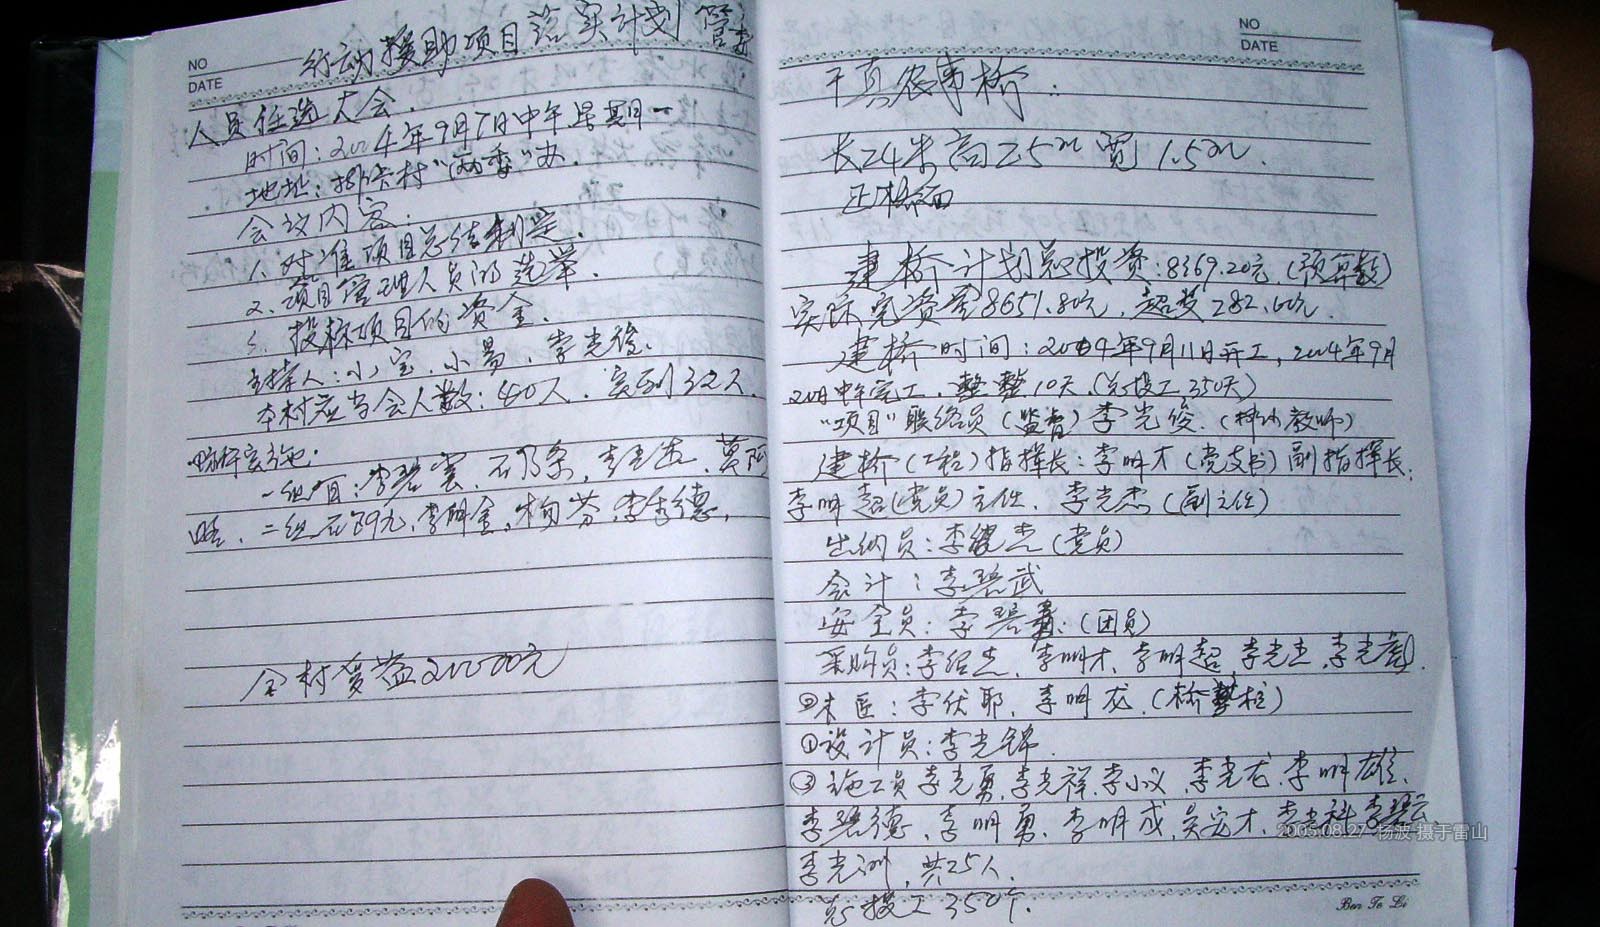 NO
DATE
行动援助项目落实计划 管委
人员任选大会.
时间:2004年9月7日中午星期一
地址:排卡村"两委"办.
会议内容:
1、对准项目总结制定.
2、项目管理人员的选举.
3、投标项目的资金.
主持人:小宝、小易、李光俊.
本村应当会人数:40人.实到32人.
一组有:李碧云、石乃条,李玉迭、莫阿
二组石, 李明金, 杨芬, 李德,
全村受益21000元
NO
DATE
干真农事桥:
长24米高2.5m宽1.5m.
正桥面
建桥计划总投资:8369.20元(预算数)
实际完资金8651.80元,超支282.60元.
建桥时间:2004年9月11日开工,2004年9月
20日中午完工,整整10天.(总投工350天)
"项目"联络员(监督)李光俊.(排小教师)
建桥(工程)指挥长:李明才(党支书)副指挥长:
李明超(党员)主任、李光杰(副主任)
出纳员:李俊杰(党员)
会计:李碧武
安全员:李碧 (团员)
采购员:李俊杰、李明才、李明超、李光杰、李光彪.
②木匠:李伏耶、李明龙.(桥 柱)
①设计员:李光锦.
③施工员李光勇、李光祥、李小义、李光右、李明雄、
李碧德、李明勇、李明成、吴安才、李光科、李碧云
李光洲,共25人.
总投工350个.
2005.08.27 杨波 摄于雷山
Ben Te Li